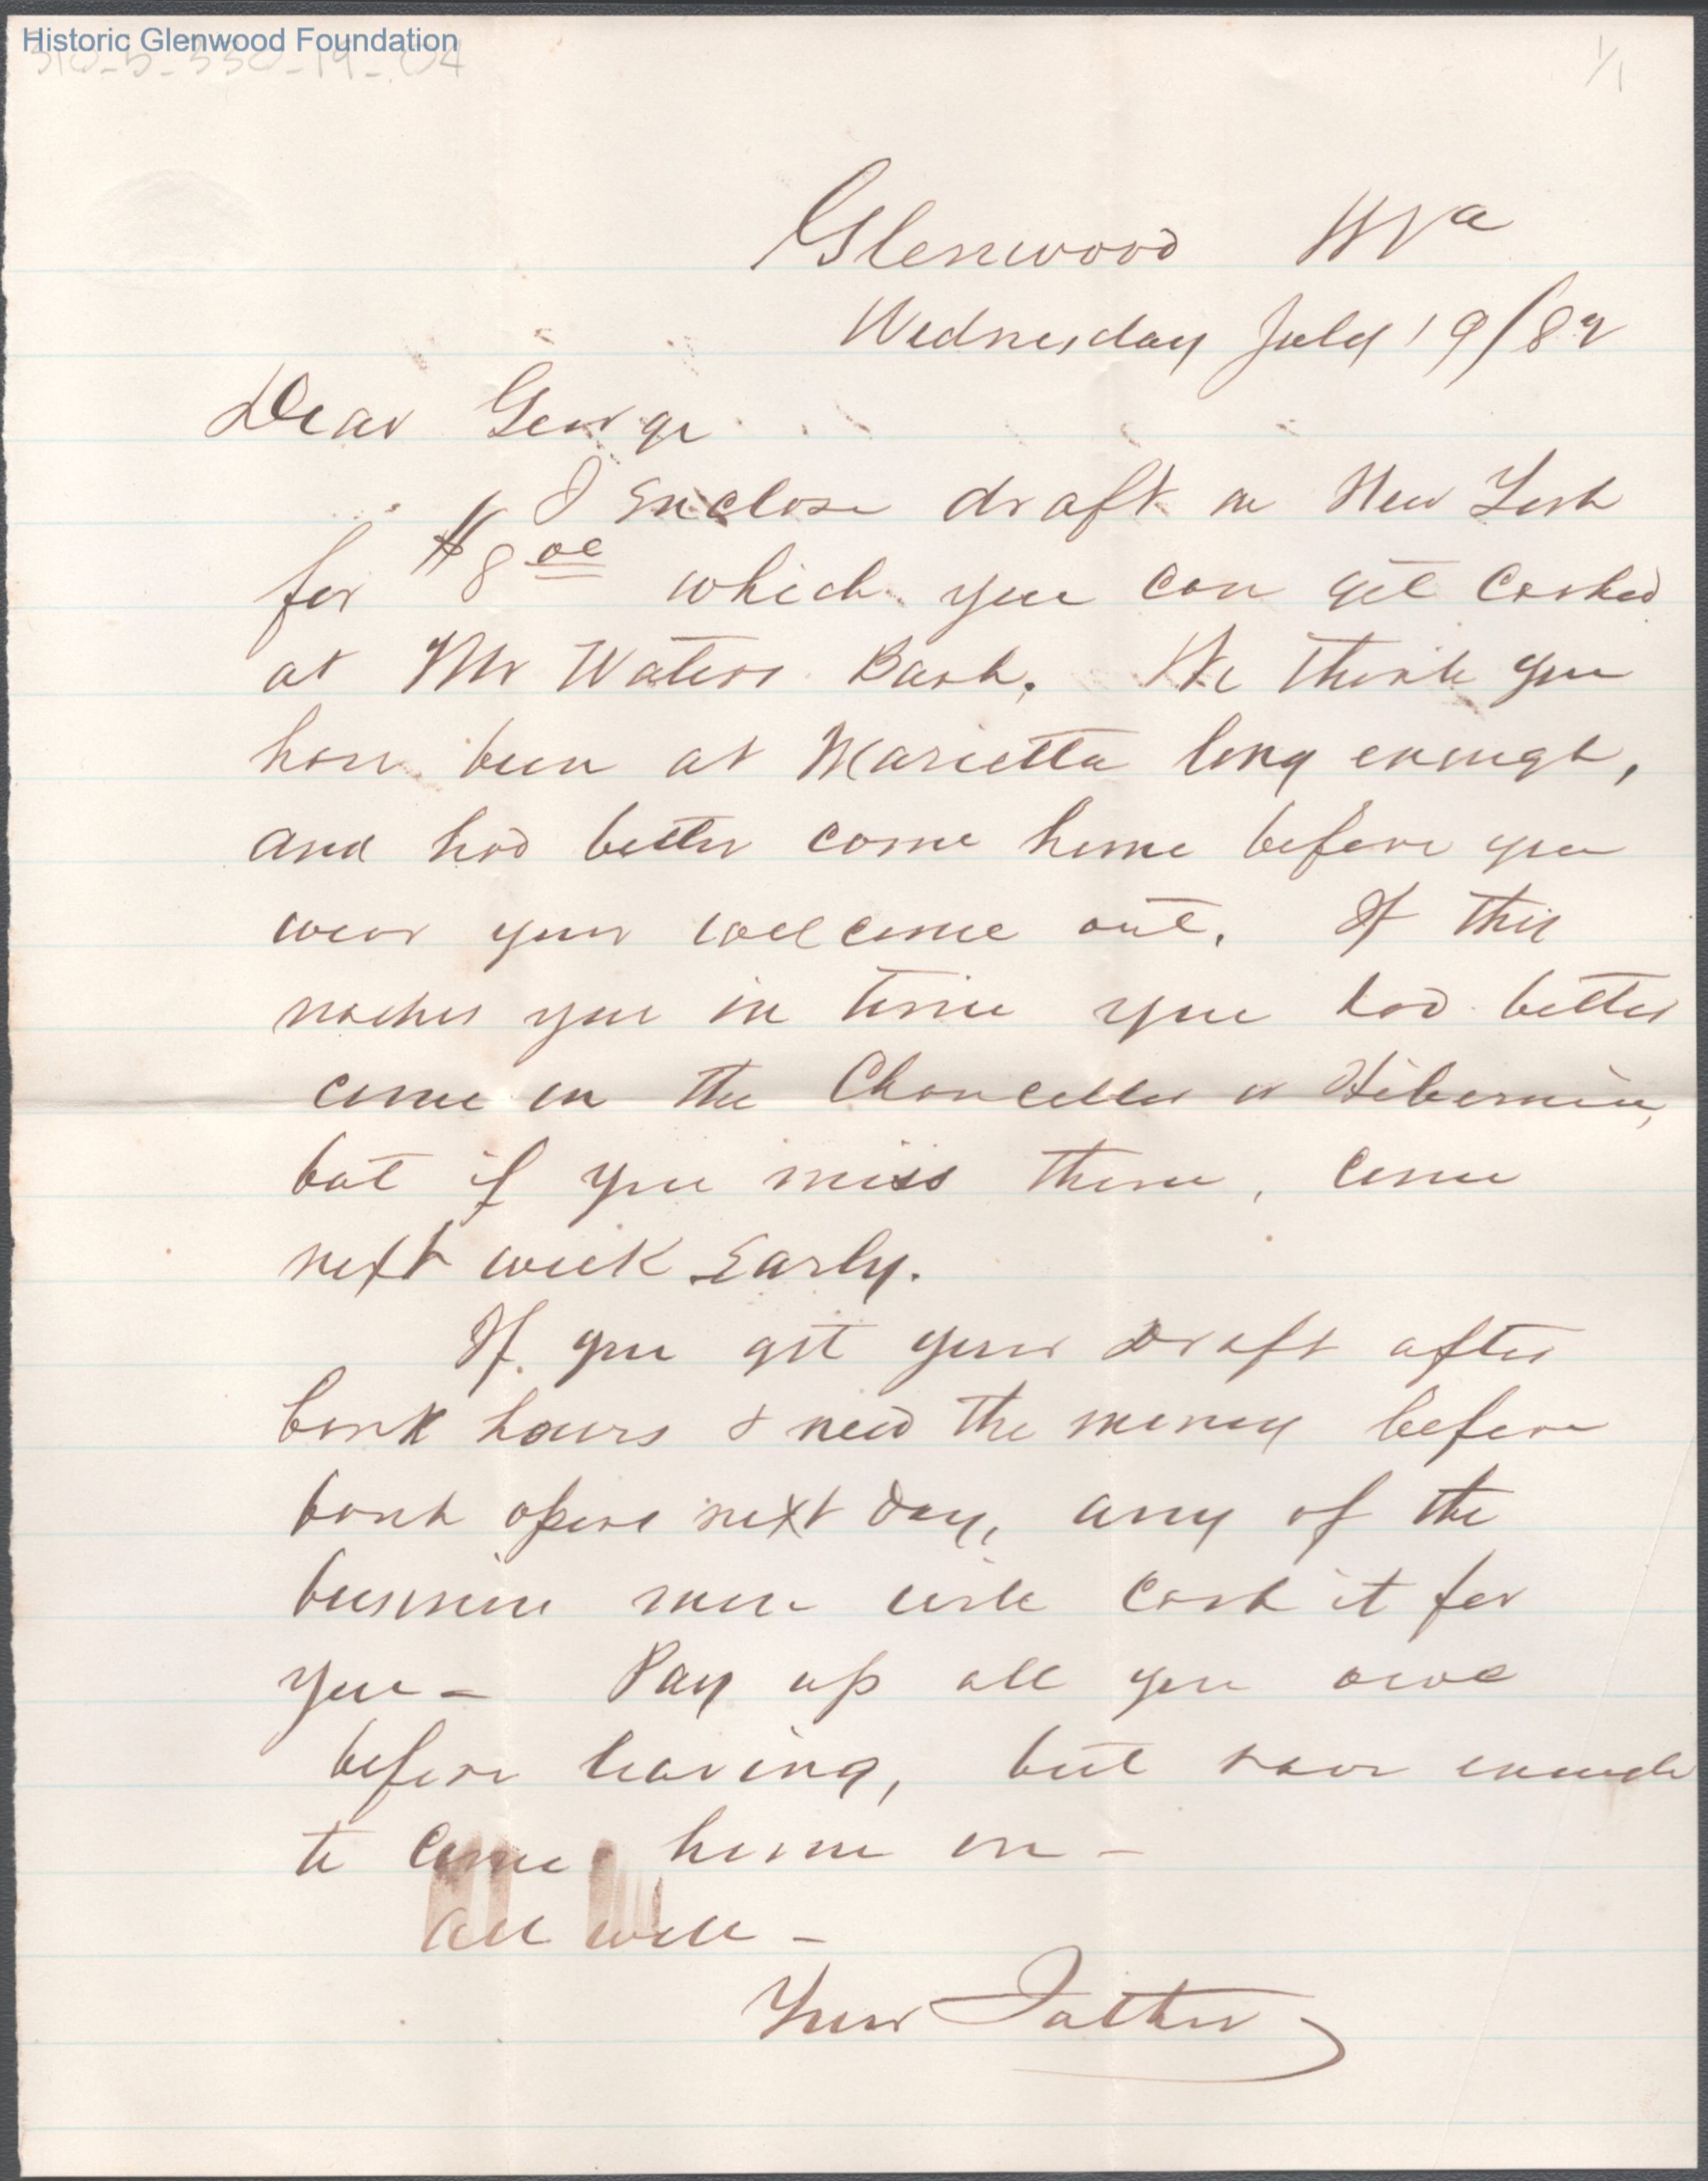 Historic Glenwood Foundation
310-5-330-19-04
1/1
Glenwood WVa
Wednesday July 19/82
Dear George
I enclose draft on New York
for $8 00 which you can get cashed
at Mr Waters Bank. We think you
have been at Marietta long enough,
and had better come home before you
wear your wellcome out. If this
reaches you in time you had better
come on the Chancellor or Hibernia,
but if you miss them, come
next week early.
If you get your draft after
bank hours & need the money before
bank opens next day, any of the
business men will cash it for
you - Pay up all you owe
before leaving, but save enough
to come home on -
All well -
Your Father